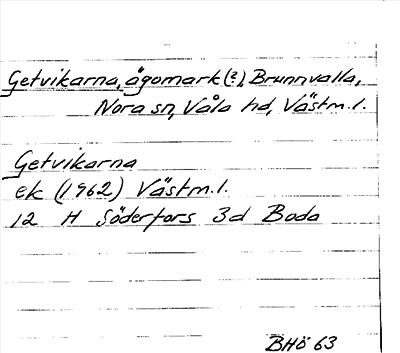 Getvikarna, ägomark (?), Brunnvalla,
Nora sn, Våla hd, Västm.l.
Getvikarna
ek (1962) Västm.l.
12 H Söderfors 3d Boda
BHö 63